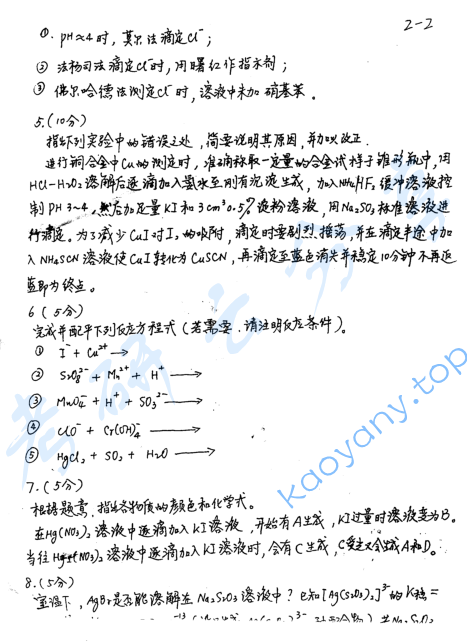 2-2
①. pH≈4时，莫尔法滴定Cl⁻；
② 法杨司法滴定Cl⁻时，用曙红作指示剂；
③ 佛尔哈德法测定Cl⁻时，溶液中未加硝基苯。
5.(10分)
指出下列实验中的错误之处，简要说明其原因，并加以改正.
进行铜合金中Cu的测定时，准确称取一定量的合金试样于锥形瓶中，用
HCl-H₂O₂溶解后逐滴加入氨水至刚有沉淀生成，加入NH₄HF₂缓冲溶液控
制pH 3~4，然后加足量KI和3cm³0.5%淀粉溶液，用Na₂SO₃标准溶液进
行滴定。为了减少CuI对I₂的吸附，滴定时要剧烈摇荡，并在滴定半途中加
入NH₄SCN溶液使CuI转化为CuSCN，再滴定至蓝色消失并稳定10分钟不再返
蓝即为终点。
6 (5分)
完成并配平下列反应方程式（若需要，请注明反应条件）。
① I⁻ + Cu²⁺ →
② S₂O₈²⁻ + Mn²⁺ + H⁺ →
③ MnO₄⁻ + H⁺ + SO₃²⁻ →
④ ClO⁻ + Cr(OH)₄⁻ →
⑤ HgCl₂ + SO₂ + H₂O →
7.(5分)
根据题意，指出各物质的颜色和化学式。
在Hg(NO₃)₂溶液中逐滴加入KI溶液，开始有A生成，KI过量时溶液变为B。
当往Hg₂(NO₃)₂溶液中逐滴加入KI溶液时，会有C生成，C变又会生成A和D。
8.(5分)
室温下，AgBr是否能溶解在Na₂S₂O₃溶液中？已知[Ag(S₂O₃)₂]³⁻的K稳=
考研云分享
kaoyany.top